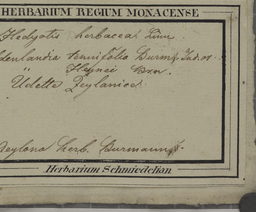 HERBARIUM REGIUM MONACENSE
Hedyotis herbacea Linn.
denlandia tenuifolia Burm. f. Ind.
Heynei Brn.
Zeylanica
Zeylona herb. Burmann
Herbarium Schmiedelian